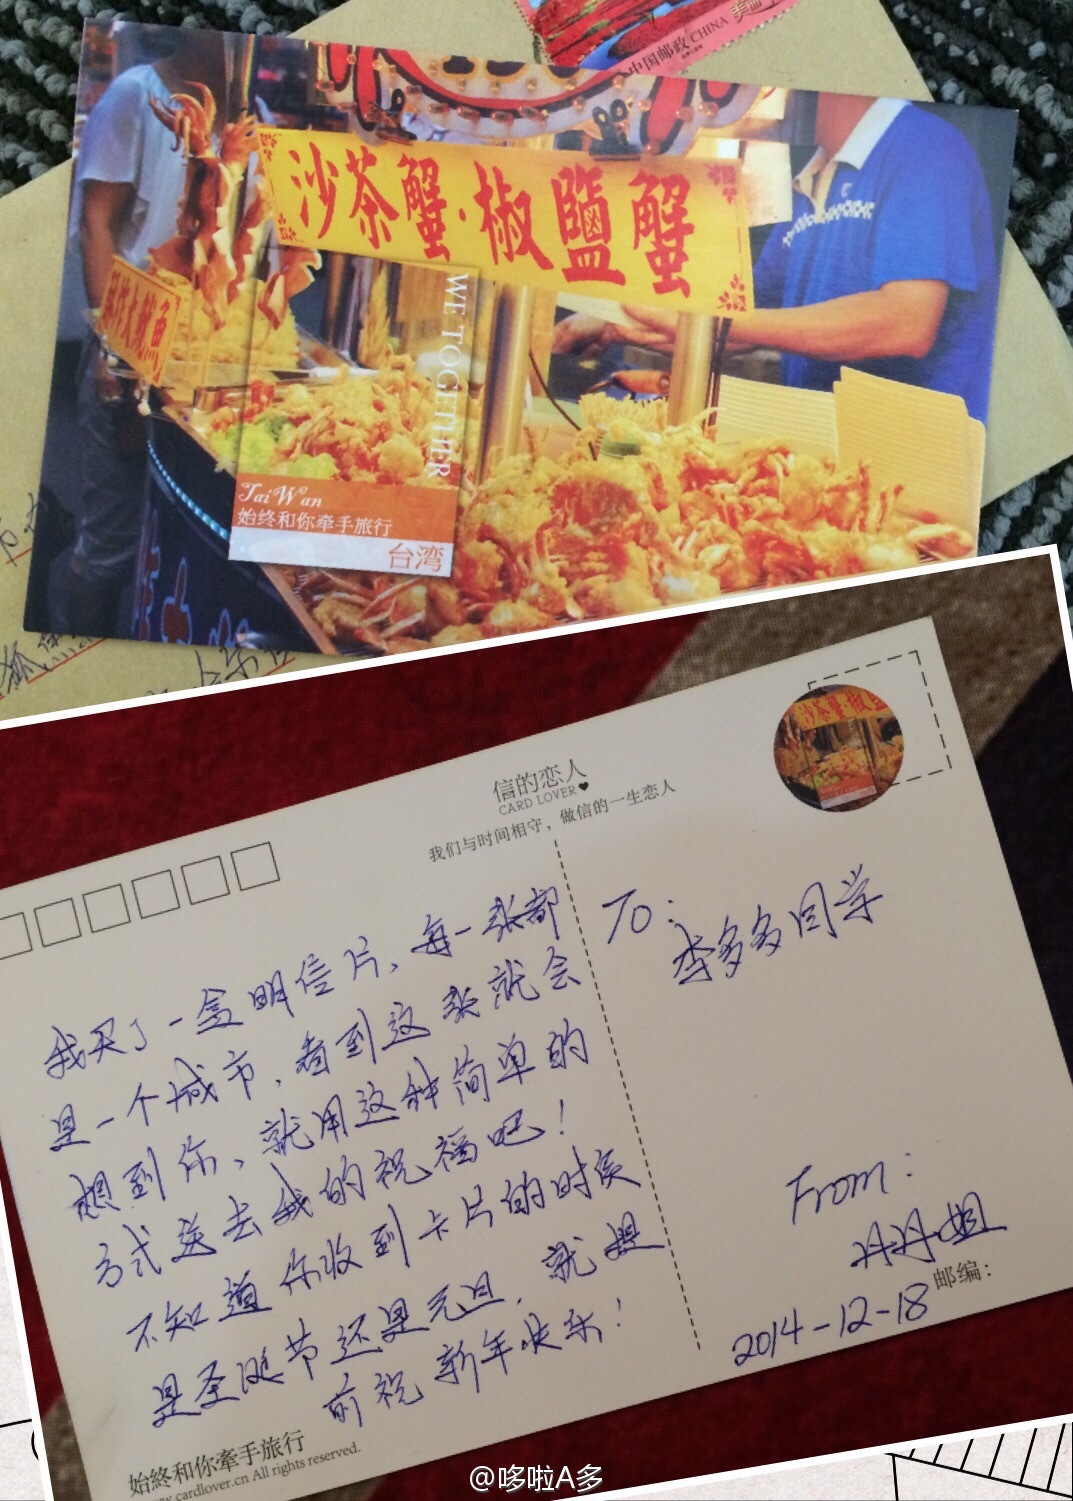 中国邮政 CHINA
沙茶蟹·椒鹽蟹
炸大魷魚
WE TOGETHER
TaiWan
始终和你牵手旅行
台湾
信的恋人
CARD LOVER
我们与时间相守,做信的一生恋人
沙茶蟹·椒鹽
To:
李多多同学
我买了一盒明信片、每一张都
是一个城市,看到这张就会
想到你、就用这种简单的
方式送去我的祝福吧!
不知道你收到卡片的时侯
是圣诞节还是元旦,就提
前祝新年快乐!
From:
丹丹姐
邮编:
2014-12-18
始终和你牵手旅行
www.cardlover.cn All rights reserved.
@哆啦A多